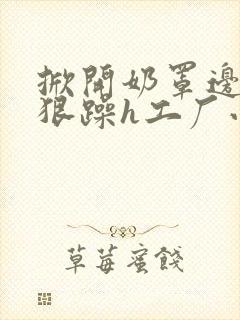 掀開奶罩邊
狠躁h工厂
草莓蜜餞